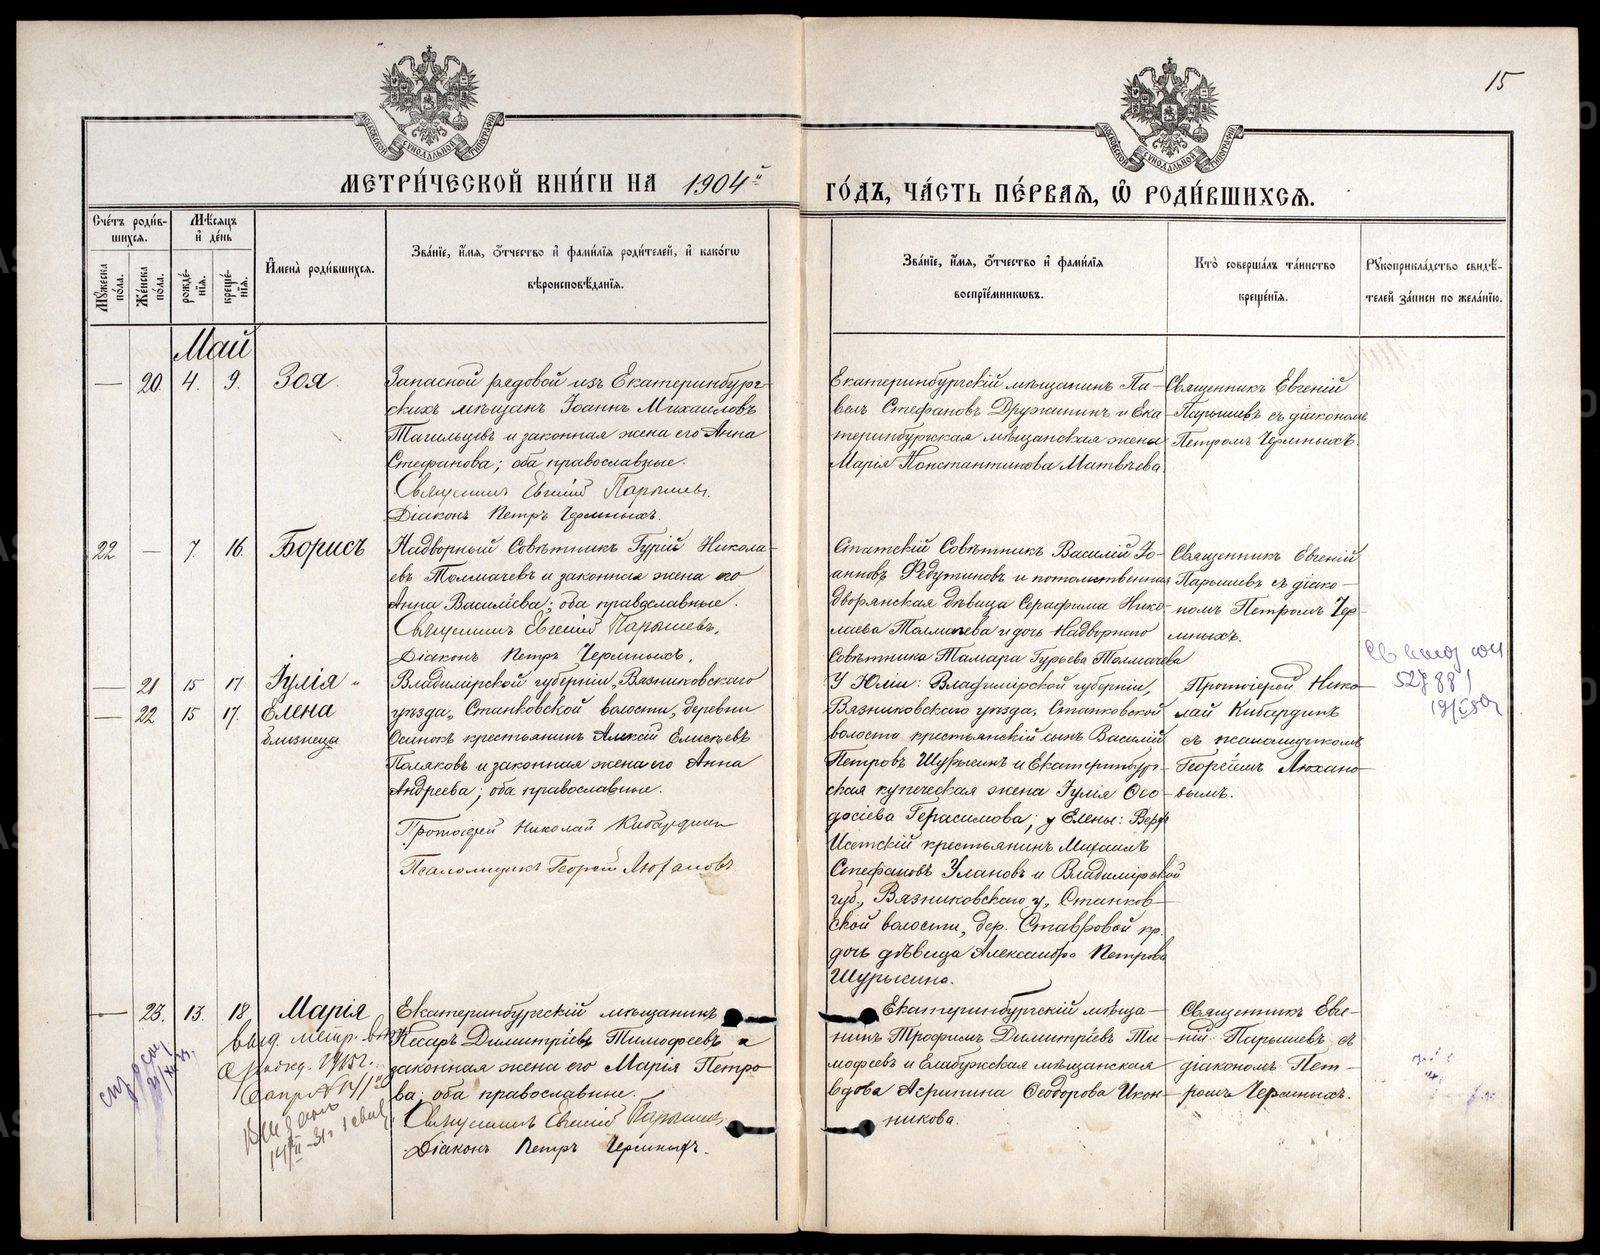 15
МОСКОВСКОЙ СѴНОДАЛЬНОЙ ТИПОГРАФІИ
МОСКОВСКОЙ СѴНОДАЛЬНОЙ ТИПОГРАФІИ
МЕТРИ́ЧЕСКОЙ КНИ́ГИ НА 1904й
ГО́ДЪ, ЧА́СТЬ ПЕ́РВАѦ, Ѽ РОДИ́ВШИХСѦ.
Сче́тъ роди́в-
шихся.
Мѣ́сяцъ
и҆ де́нь
Мꙋ́жеска по́ла.
Же́нска по́ла.
рожде́-нїя.
креще́-нїя.
И҆мена̀ роди́вшихся.
Зва́нїе, и҆́мя, ѻ҆́тчество и҆ фами́лїя роди́телей, и҆ како́гѡ
вѣроисповѣ́данїя.
Зва́нїе, и҆́мя, ѻ҆́тчество и҆ фами́лїя
воспрїе́мникѡвъ.
Кто̀ соверша́лъ та́инство
креще́нїя.
Рꙋкоприкла́дство свидѣ́-
телей за́писи по жела́нїю.
Май
— 20 4. 9. Зоя
Запасной рядовой изъ Екатеринбург-
скихъ мѣщанъ Іоаннъ Михаиловъ
Тагильцевъ и законная жена его Анна
Стефанова; оба православные.
Священникъ Евгеній Парышевъ.
Діаконъ Петръ Черминыхъ.
Екатеринбургскій мѣщанинъ Па-
велъ Стефановъ Дружининъ и Ека-
теринбургская мѣщанская жена
Марія Константинова Матвѣева
Священникъ Евгеній
Парышевъ съ діакономъ
Петромъ Черминыхъ.
22 — 7. 16. Борисъ
Надворный Совѣтникъ Гурій Никола-
евъ Толмачевъ и законная жена его
Анна Василіева; оба православные.
Священникъ Евгеній Парышевъ,
Діаконъ Петръ Черминыхъ.
Статскій Совѣтникъ Василій Іо-
анновъ Федутиновъ и потомственная
дворянская дѣвица Серафима Нико-
лаева Толмачева и дочь Надворнаго
Совѣтника Тамара Гурьева Толмачева
Священникъ Евгеній
Парышевъ съ діако-
номъ Петромъ Чер-
миныхъ.
— 21 15 17 Іулія
— 22 15 17. Елена
близнецы
Владимірской губерніи, Вязниковскаго
уѣзда, Станковской волости, деревни
Осинокъ крестьянинъ Алексій Елисѣевъ
Поляковъ и законная жена его Анна
Андреева; оба православные.
Протоіерей Николай Кибардинъ
Псаломщикъ Георгій Люхановъ
У Юліи: Владимірской губерніи,
Вязниковскаго уѣзда, Станковской
волости крестьянскій сынъ Василій
Петровъ Шурыгинъ и Екатеринбург-
ская купеческая жена Іулія Ѳео-
досіева Герасимова; у Елены: Верх
Исетскій крестьянинъ Михаилъ
Стефановъ Улановъ и Владимірской
губ., Вязниковскаго у, Станков-
ской волости, дер. Ставровой кр.
дочь дѣвица Александра Петрова
Шурыгина.
Протоіерей Нико-
лай Кибардинъ
съ псаломщикомъ
Георгіемъ Люхано-
вымъ.
— 23. 13. 18. Марія
Екатеринбургскій мѣщанинъ
Кесарь Димитріевъ Тимофеевъ и
законная жена его Марія Петро-
ва, оба православные.
Священникъ Евгеній Парышевъ,
Діаконъ Петръ Черминыхъ.
Екатеринбургскій мѣща-
нинъ Трофимъ Димитріевъ Ти-
мофеевъ и Елабужская мѣщанская
вдова Агрипина Ѳеодорова Икон-
никова.
Священникъ Евге-
ній Парышевъ съ
діакономъ Пет-
ромъ Черминыхъ.